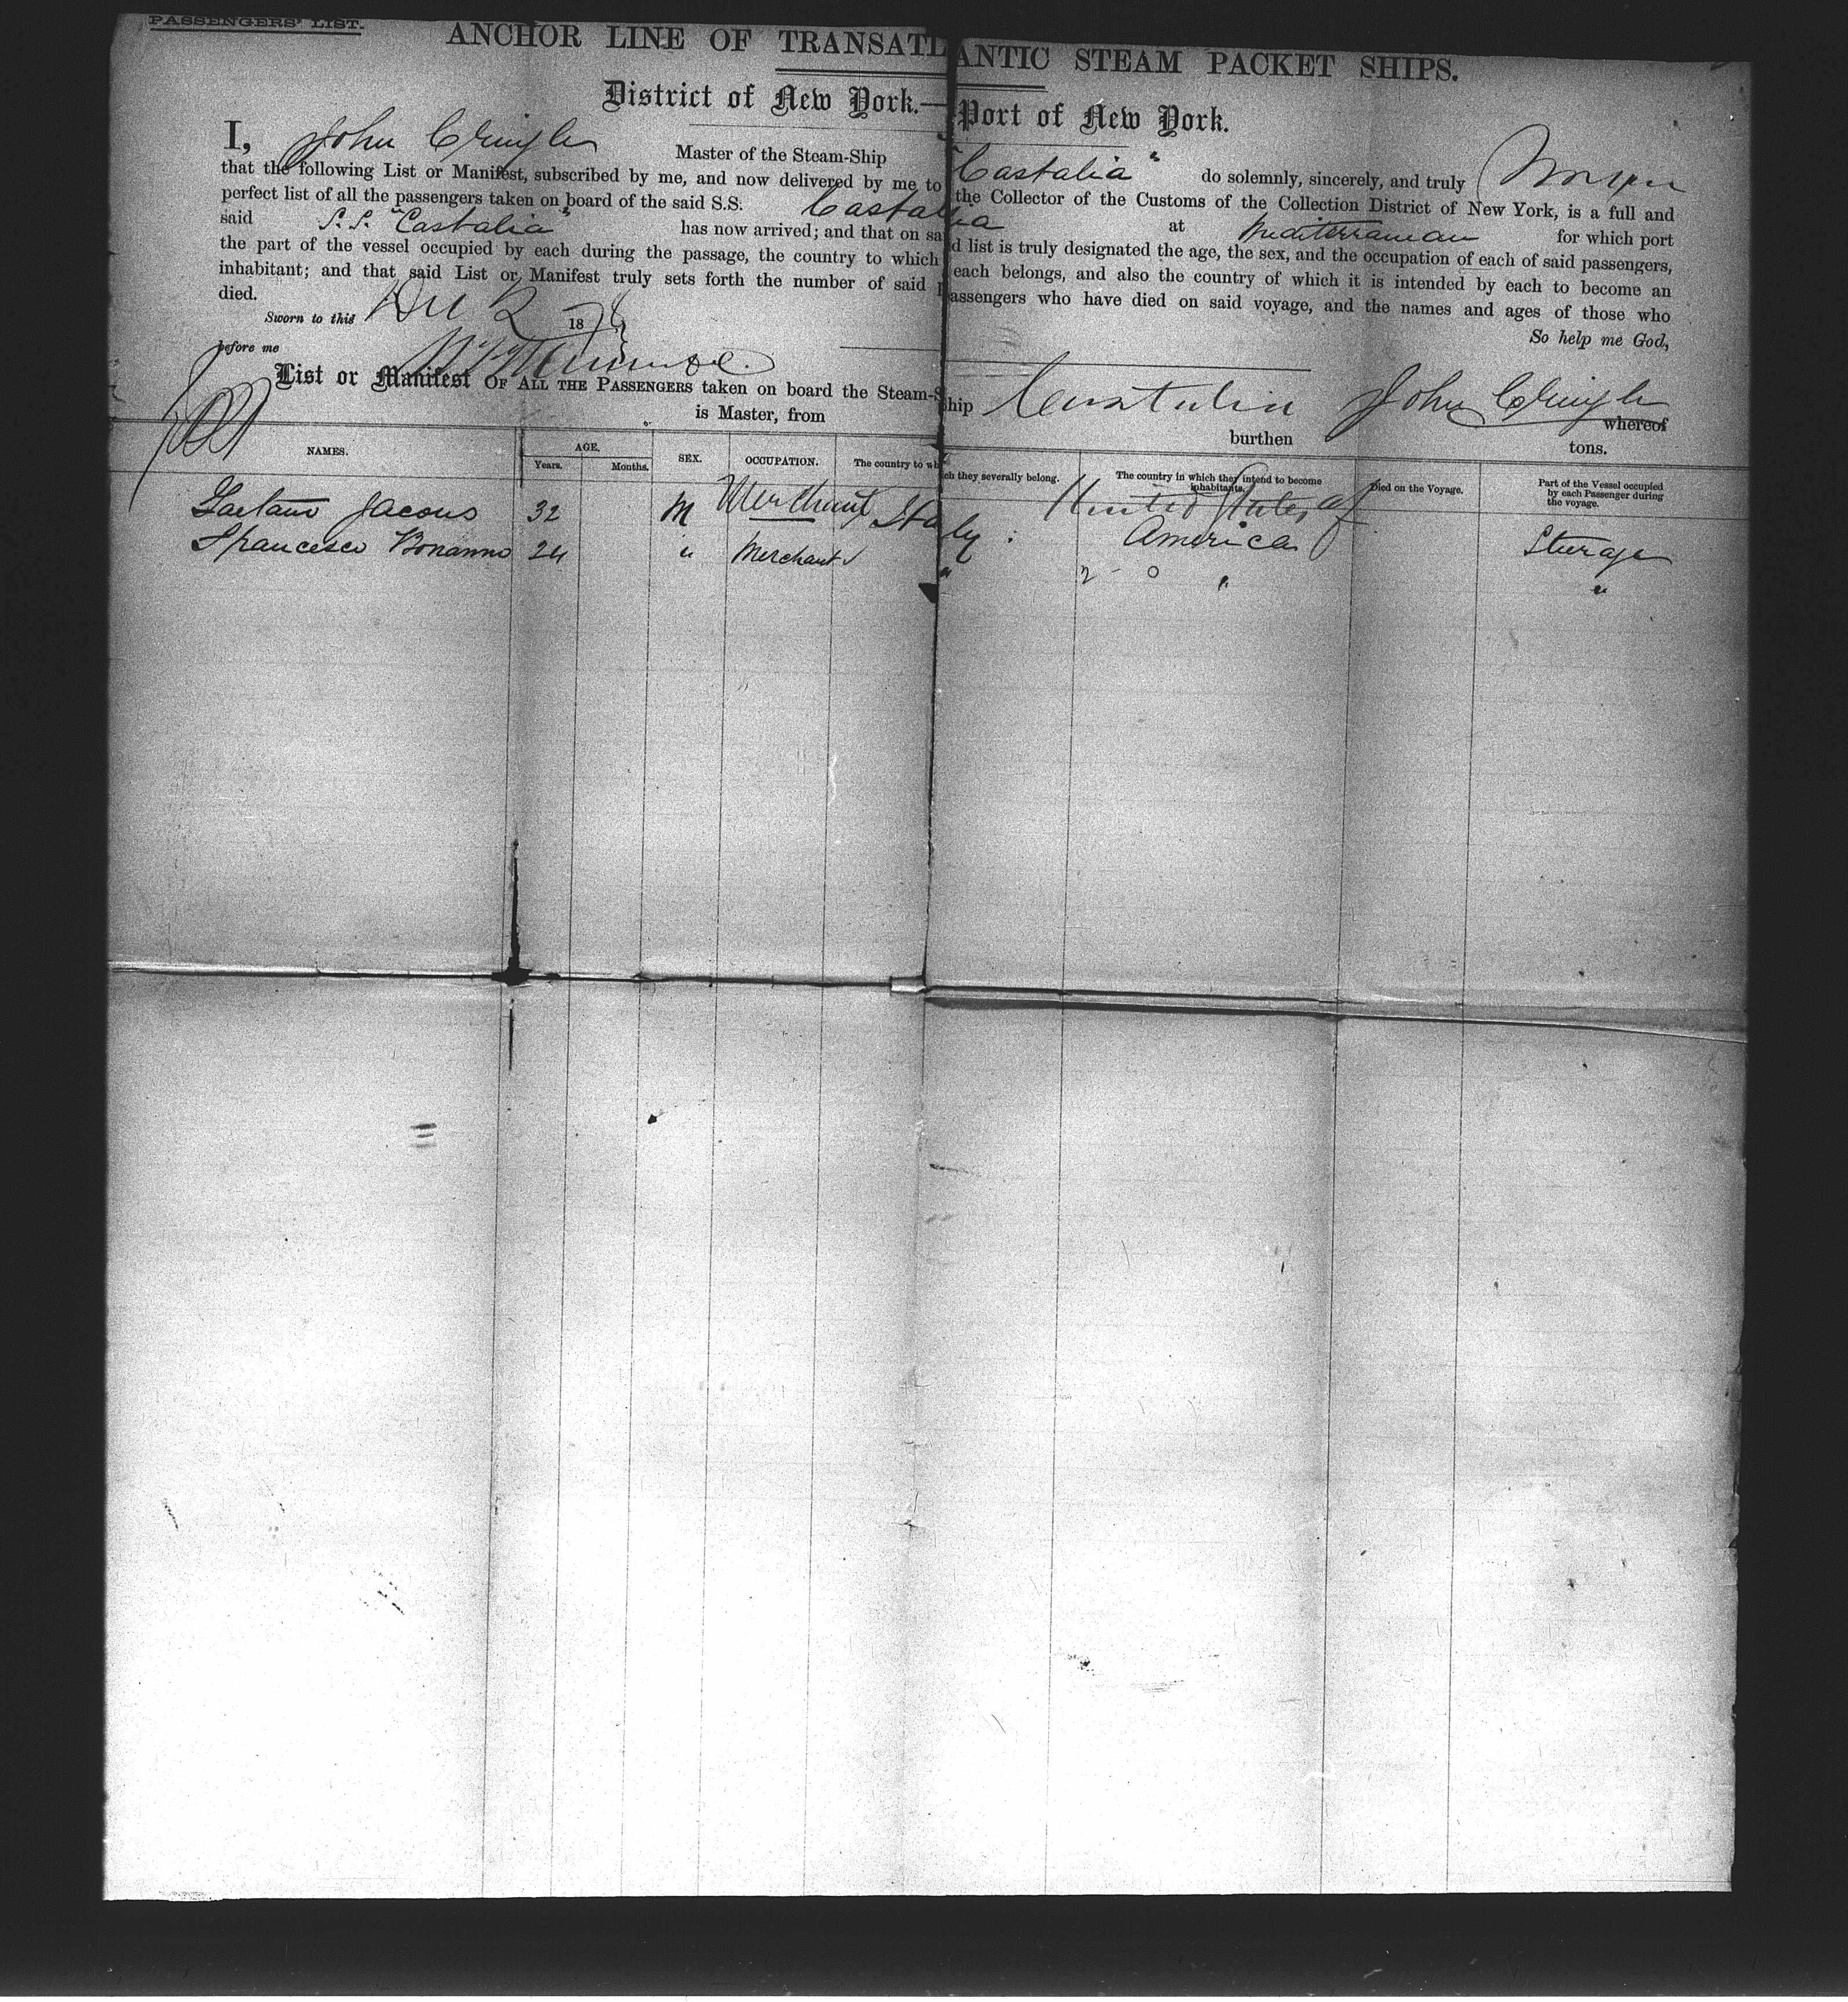 PASSENGERS' LIST.
ANCHOR LINE OF TRANSATLANTIC STEAM PACKET SHIPS.
District of New York.—Port of New York.
I, John Master of the Steam-Ship "Castalia" do solemnly, sincerely, and truly
that the following List or Manifest, subscribed by me, and now delivered by me to the Collector of the Customs of the Collection District of New York, is a full and
perfect list of all the passengers taken on board of the said S.S. Castalia at Mediterranean for which port
said S.S. "Castalia" has now arrived; and that on said list is truly designated the age, the sex, and the occupation of each of said passengers,
the part of the vessel occupied by each during the passage, the country to which each belongs, and also the country of which it is intended by each to become an
inhabitant; and that said List or Manifest truly sets forth the number of said passengers who have died on said voyage, and the names and ages of those who
died.
So help me God,
Sworn to this Dec 2 187
before me
List or Manifest OF ALL THE PASSENGERS taken on board the Steam-Ship Castalia John whereof
is Master, from burthen tons.
NAMES. AGE. SEX. OCCUPATION. The country to which they severally belong. The country in which they intend to become inhabitants. Died on the Voyage. Part of the Vessel occupied by each Passenger during the voyage.
Years. Months.
Gaetano Jacono 32 M Merchant Italy United States of America Steerage
Francesco Bonanno 24 " Merchant " " "